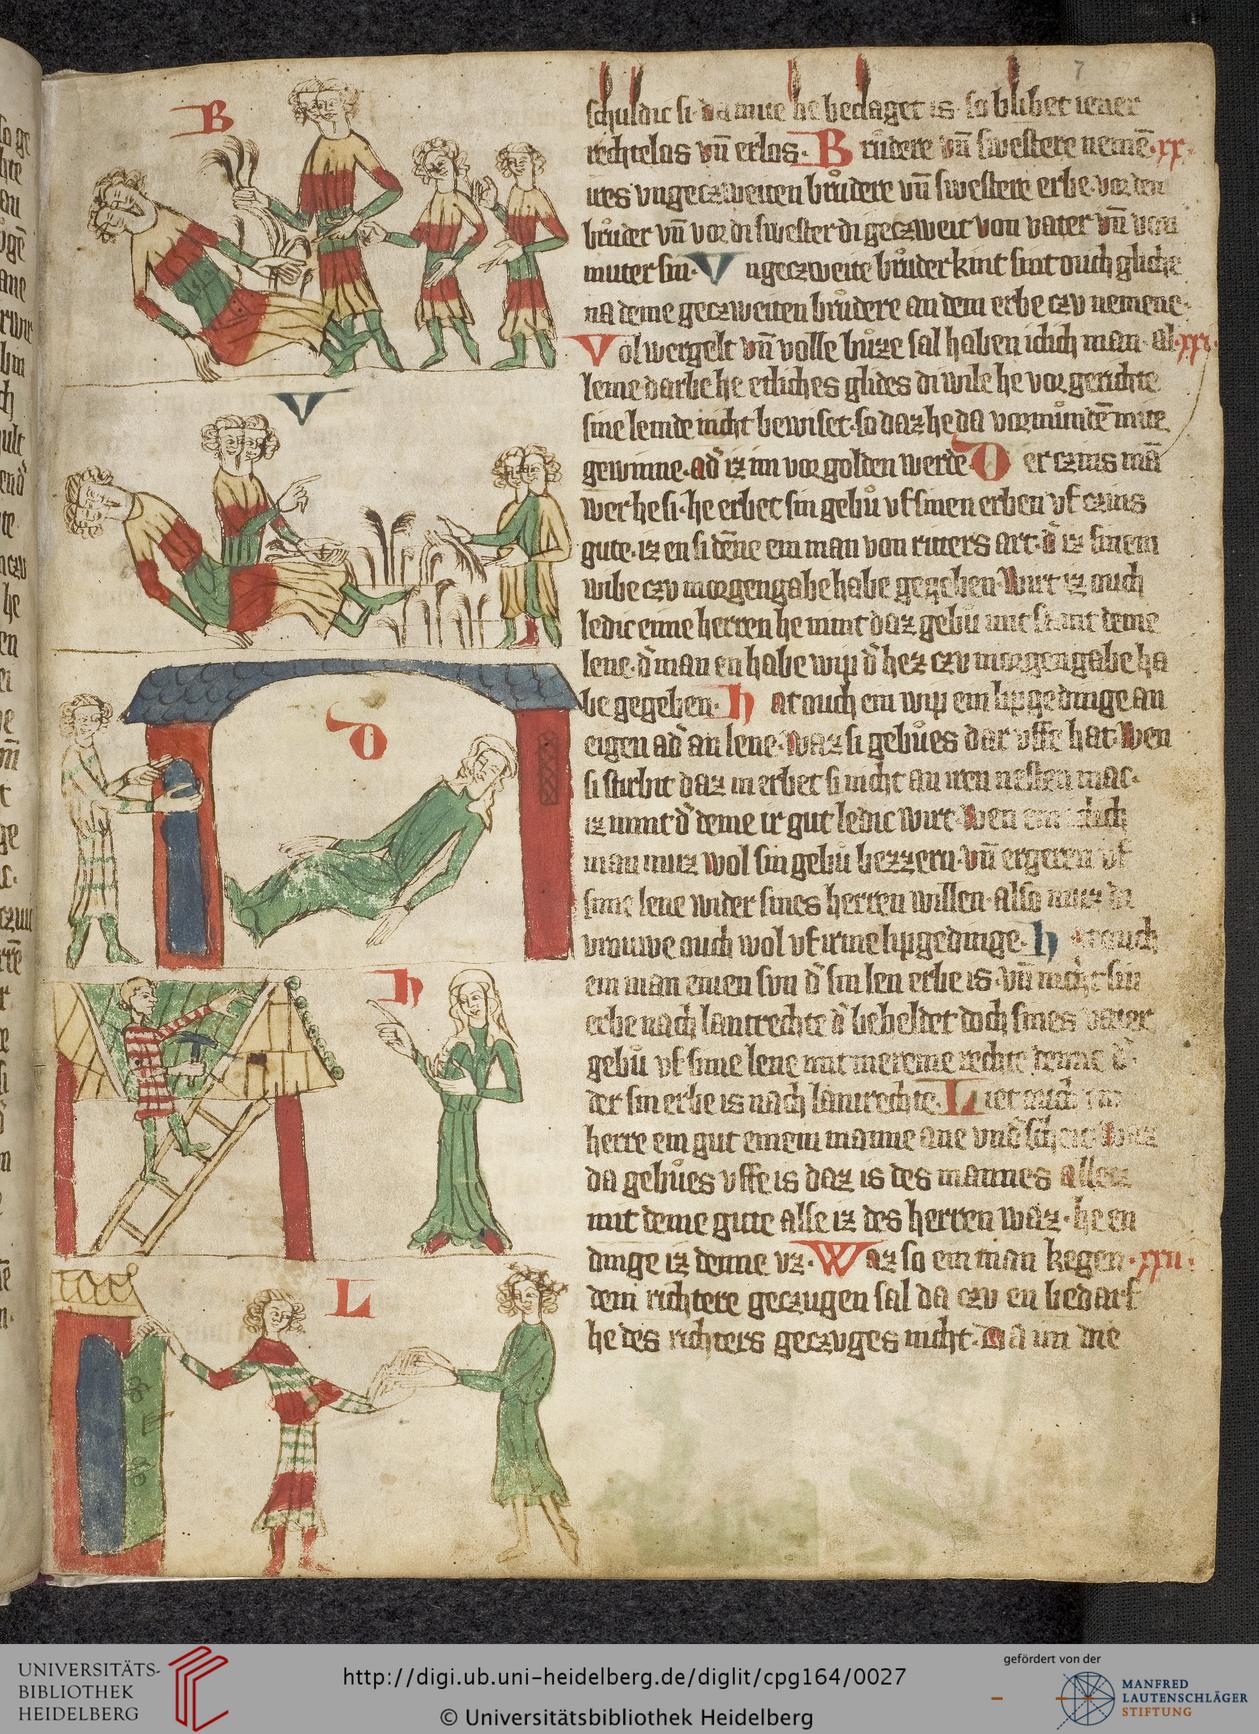 B
V
D
h
L
7
schuldic si da mite he beclaget is so blibet iener
rechtelos vn̄ erlos· B růdere vn̄ swestere nemē·xx·
ires vngeczweiten brůdere vn̄ swestere erbe vor den
brůder vn̄ vor di swester di geczweit von vater vn̄ von
muter sin· V ngeczweite brůder kint sint ouch gliche
na deme geczweiten brůdere an dem erbe czv nemene·
Vol wergelt vn̄ volle bůze sal haben iclich man· al·xxi·
leine darbe he etliches glides di wile he vor gerichte
sine lemde nicht bewiset·so daz he da vormůndē mite
gewinne·ad' iz im vorgolden werde D er czins mā
wer he si·he erbet sin gebů vf sinen erben vf czins
gute·iz en si dēne ein man von ritters art·d' iz sinem
wibe czv morgengabe habe gegeben·Wirt iz ouch
ledic eime herren he nimt daz gebů mit samt deme
lene·d' man en habe wip d' hez czv morgengabe ha
be gegeben· h at ouch ein wip ein lipgedinge an
eigen ad' an lene·waz si gebůes dar vffe hat·Wen
si stirbit daz in erbet si nicht an iren nesten mac·
iz nimt d' deme ir gut ledic wirt·Wen ein iclich
man muz wol sin gebů bezzern·vn̄ ergeren vf
sime lene wider sines herren willen·also muz di
vrouwe ouch wol vf irme lipgedinge· h at ouch
ein man einen svn d' sin len erbe is·vn̄ nicht sin
erbe nach lantrechte d' beheldet doch sines vater
gebů vf sime lene mit mereme rechte denne d'
der sin erbe is nach lantrechte· L iet ouch ein
herre ein gut einem manne ane vnd'scheit waz
da gebůes vffe is daz is des mannes allez
mit deme gute alse iz des herren waz·he en
dinge iz denne vz· W az so ein man kegen·xxii·
dem richtere geczugen sal da czv en bedarf
he des richters geczuges nicht·Da im die
UNIVERSITÄTS-
BIBLIOTHEK
HEIDELBERG
http://digi.ub.uni-heidelberg.de/diglit/cpg164/0027
© Universitätsbibliothek Heidelberg
gefördert von der
MANFRED
LAUTENSCHLÄGER
STIFTUNG